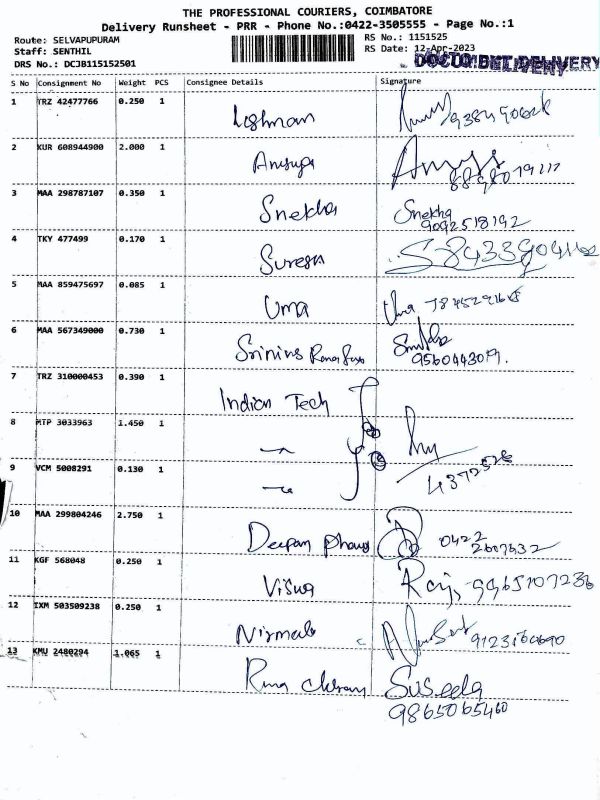 THE PROFESSIONAL COURIERS, COIMBATORE
Delivery Runsheet - PRR - Phone No.:0422-3505555 - Page No.:1
Route: SELVAPUPURAM
RS No.: 1151525
Staff: SENTHIL
RS Date: 12-Apr-2023
DRS No.: DCJB115152501
DELIVERY
S No Consignment No Weight PCS Consignee Details Signature
1 TRZ 42477766 0.250 1 Lashman
2 KUR 608944900 2.000 1 Anusuya
3 MAA 298787107 0.350 1 Snekha Snekha
9092518192
4 TKY 477499 0.170 1 Suresh
5 MAA 859475697 0.085 1 Uma Uma
6 MAA 567349000 0.730 1 Srinivs
9560443019.
7 TRZ 310000453 0.390 1 Indian Tech
8 MTP 3033963 1.450 1
9 VCM 5008291 0.130 1
4372528
10 MAA 299804246 2.750 1 Deepam 0422
2607632
11 KGF 568048 0.250 1 Viswa 9965107236
12 IXM 503509238 0.250 1 Nirmala
13 KMU 2480294 1.065 1 Suseela
9865065460